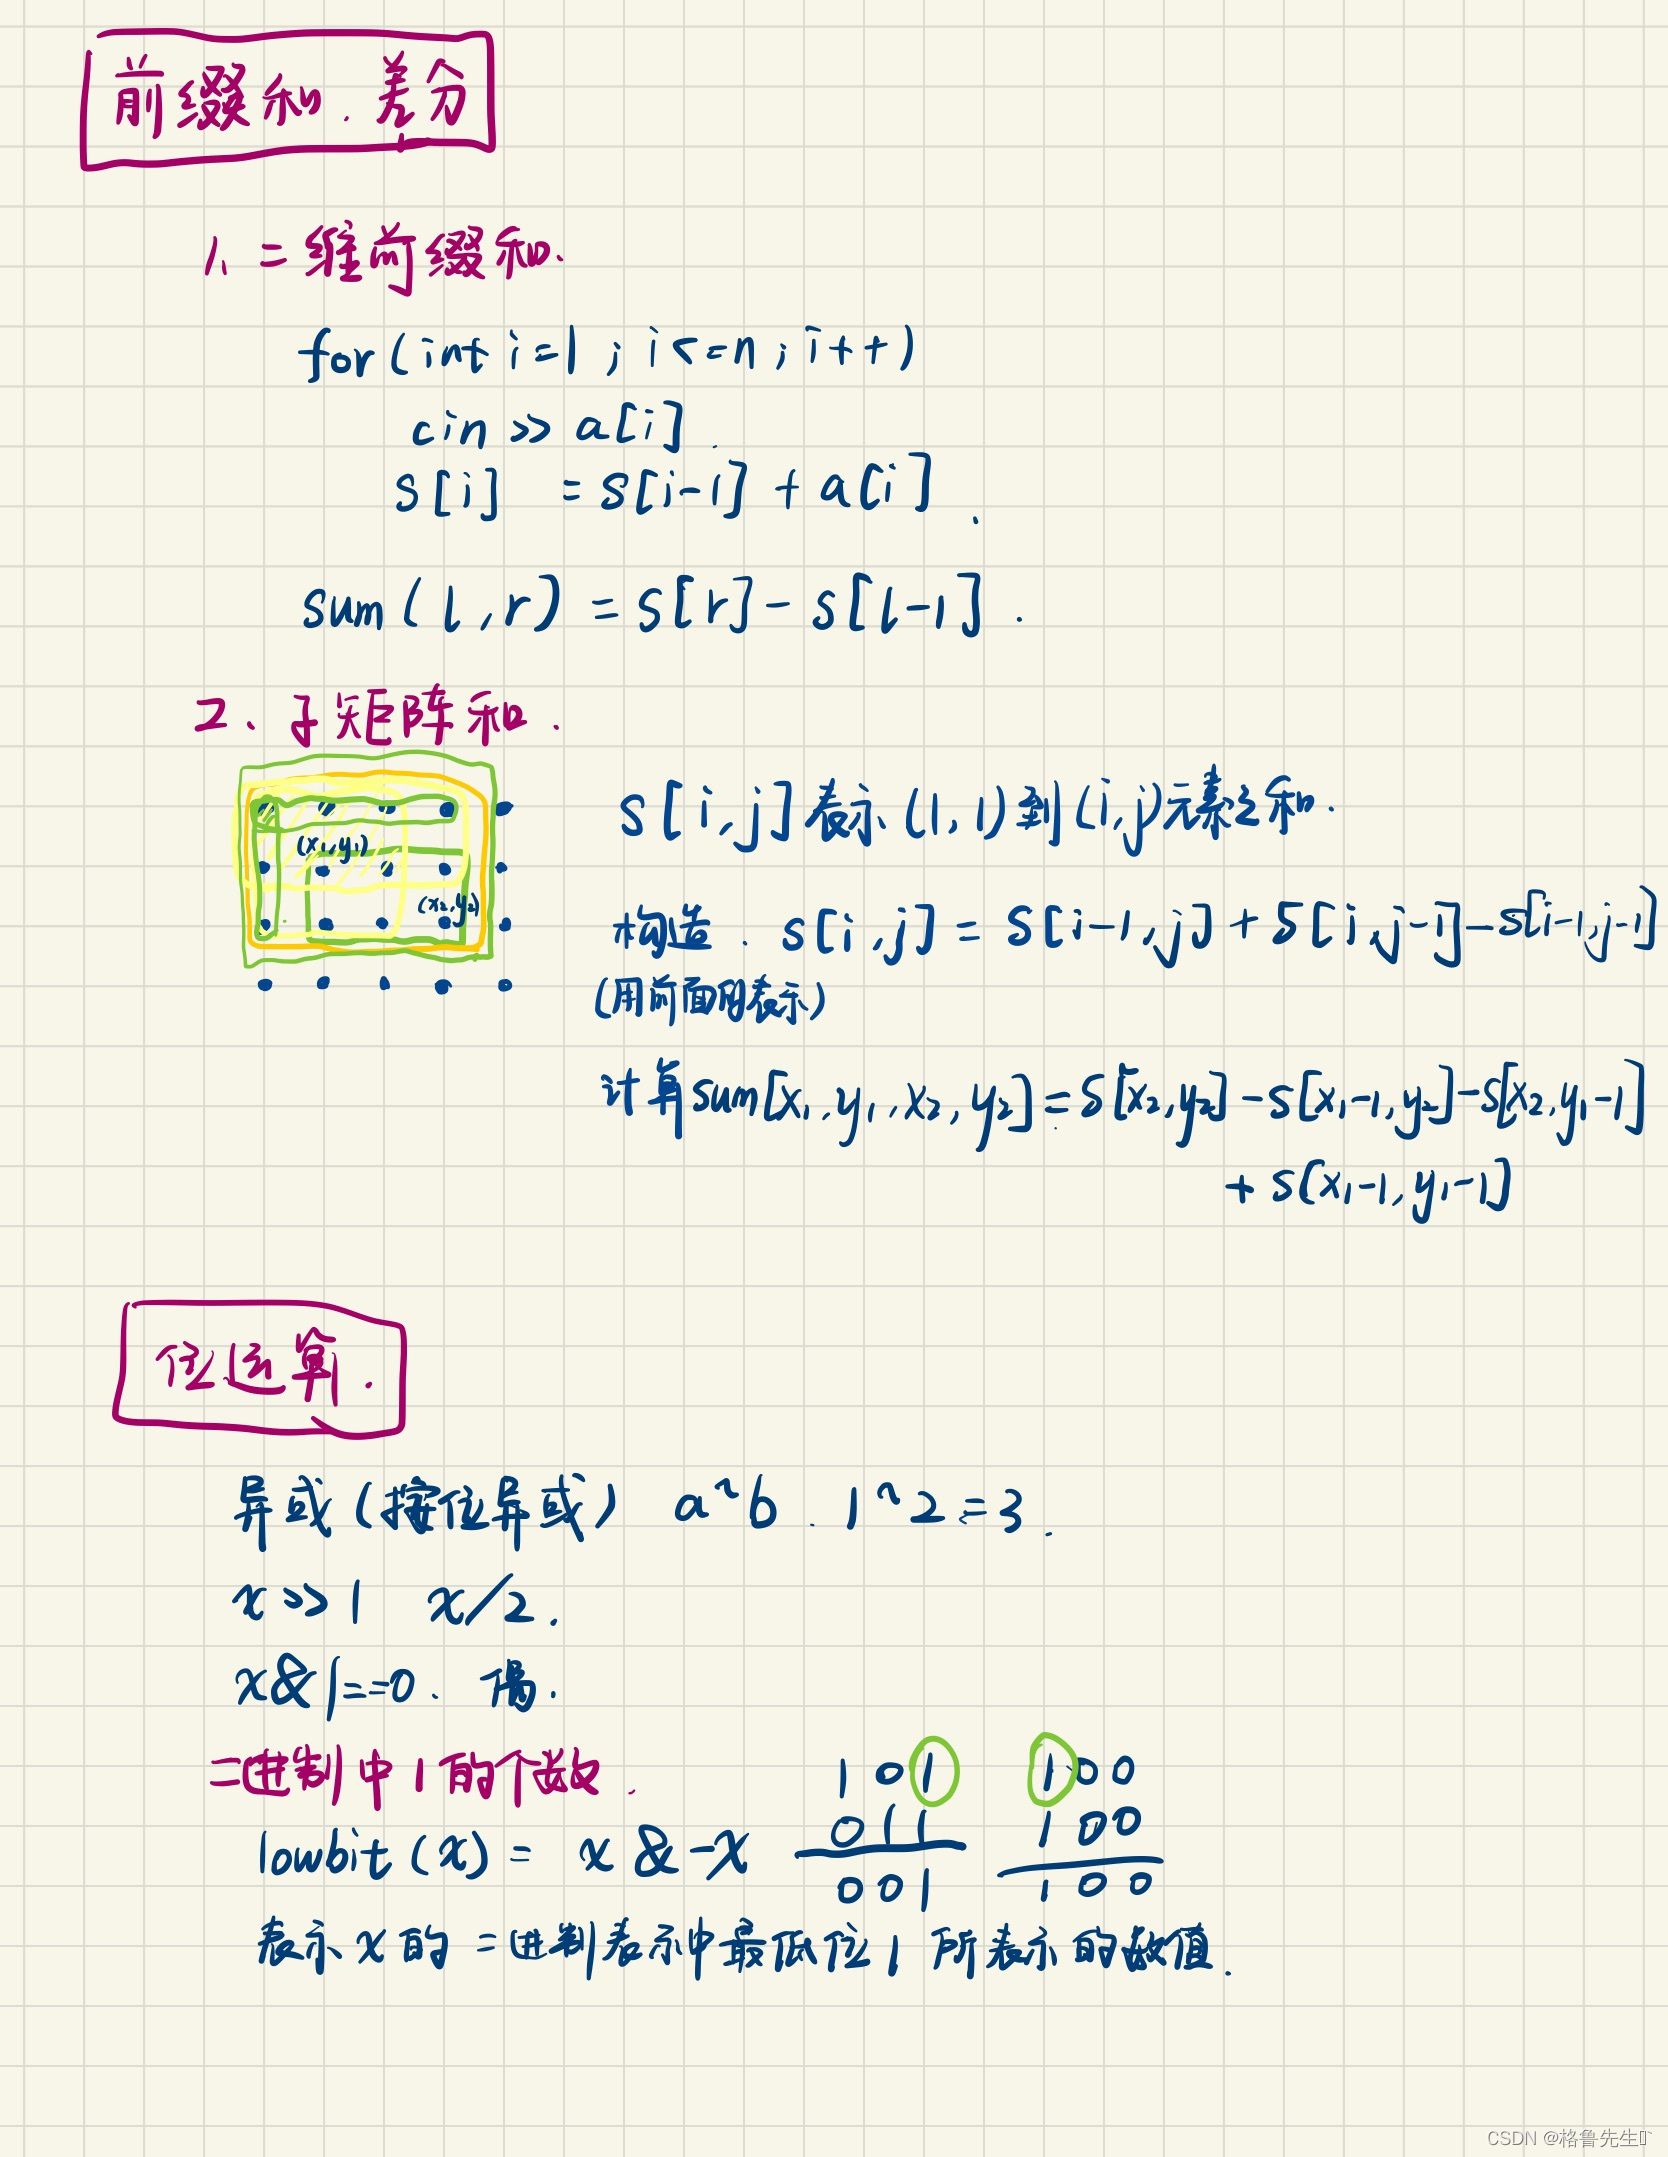 前缀和.差分
1、二维前缀和.
for(int i=1;i<=n;i++)
cin>>a[i].
s[i] =s[i-1]+a[i].
sum(l,r)=s[r]-s[l-1].
2、子矩阵和.
(x₁,y₁)
(x₂,y₂)
S[i,j]表示(1,1)到(i,j)元素之和.
构造.s[i,j]=S[i-1,j]+S[i,j-1]-S[i-1,j-1]
(用前面的表示)
计算sum[x₁,y₁,x₂,y₂]=S[x₂,y₂]-S[x₁-1,y₂]-S[x₂,y₁-1]
+S[x₁-1,y₁-1]
位运算.
异或(按位异或) a^b. 1^2=3.
x>>1 x/2.
x&1==0. 偶.
二进制中1的个数.
101 100
lowbit(x)= x&-x 011 100
001 100
表示x的二进制表示中最低位1所表示的数值.
CSDN @格鲁先生